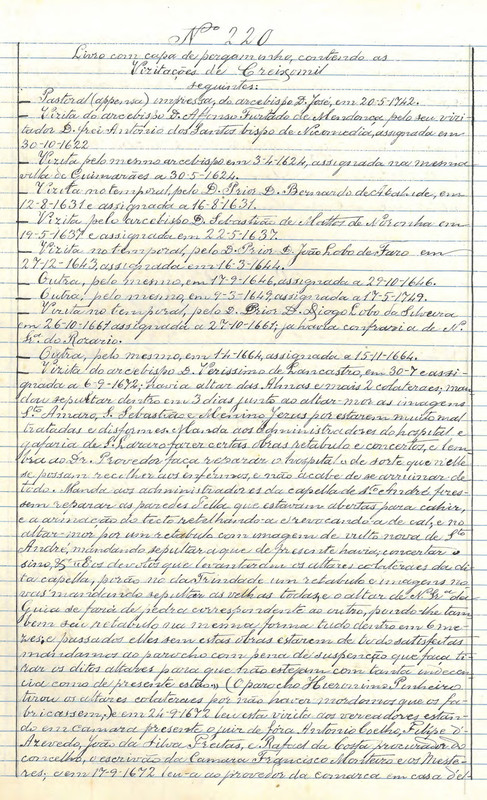 Nº 220
Livro com capa de pergaminho, contendo as
Visitações de Creixomil
seguintes:
— Pastoral (appensa) impressa, do arcebispo D. José, em 20-5-1742.
— Visita do arcebispo D. Affonso Furtado de Mendonça, pelo seu visi-
tador D. frei António dos Santos bispo de Nicomedia, assignada em
30-10-1622
— Visita, pelo mesmo arcebispo em 3-4-1624, assignada na mesma
villa de Guimarães a 30-5-1624.
— Visita no temporal, pelo D. Prior D. Bernardo de Ataíde, em
12-8-1631 e assignada a 16-8-1631.
— Visita pelo arcebispo D. Sebastião de Mattos de Noronha em
19-5-1637 e assignada em 22-5-1637.
— Visita no temporal, pelo D. Prior D. João Lobo de Faro em
27-12-1643, assignada em 16-3-1644.
— Outra, pelo mesmo, em 17-9-1646, assignada a 29-10-1646.
— Outra, pelo mesmo, em 9-3-1649, assignada a 17-5-1749.
— Visita no temporal, pelo D. Prior D. Diogo Lobo da Silveira
em 26-10-1661 assignada a 27-10-1661; já havia confraria de N.
Sr.ª do Rosario.
— Outra, pelo mesmo, em 1-4-1664, assignada a 15-11-1664.
— Visita do arcebispo D. Veríssimo de Lancastro, em 30-7 e assi-
gnada a 6-9-1672; havia altar das Almas e mais 2 colateraes; man-
dou sepultar dentro em 3 dias junto ao altar-mor as imagens
Sto Amaro, S. Sebastião e Menino Jesus por estarem muito mal
tratadas e disformes. Manda aos administradores do hospital e
gafaria de S. Lazaro fazer certas obras retabulo e concertos, e lem-
bra ao Dr. Provedor faça reparar o hospital «de sorte que nelle
se possam recolher aos infermos, e não acabe de se arruinar de
todo. Manda aos administradores da capella de Sto André, fizes-
sem reparar as paredes d'ella que estavam abertas para cahir,
e a armação do tecto retelhando-a e revocando-a de cal, e no
altar-mor por um retabulo com imagem de vulto nova de Sto
André, mandando sepultar a que de presente havia, concertar o
sino, Os devotos que levantaram os altares colateraes da di-
ta capella, porão no da Trindade um retabulo e imagens no-
vas mandando sepultar as velhas todas, e o altar de N. Sr.ª da
Guia se faria de pedra correspondente ao outro, pondo-lhe tam-
bem seu retabulo na mesma forma tudo dentro em 6 me-
zes, e passados elles sem estas obras estarem de todo satisfeitas
mandamos ao parocho com pena de suspenção que faça ti-
rar os ditos altares para que não estejam com tanta indecen-
cia como de presente estão» (O parocho Hieronimo Pinheiro
tirou os altares colateraes por não haver mordomos que os fa-
bricassem, e em 24-9-1672 leu esta visita aos vereadores estan-
do em camara presente o juiz de fóra António Coelho, Felipe d'
Azevedo, João da Silva Freitas, e Rafael da Costa procurador do
concelho, o escrivão da Camara Francisco Monteiro e os Meste-
res; e em 17-9-1672 leu-a ao provedor da comarca em casa d'el-